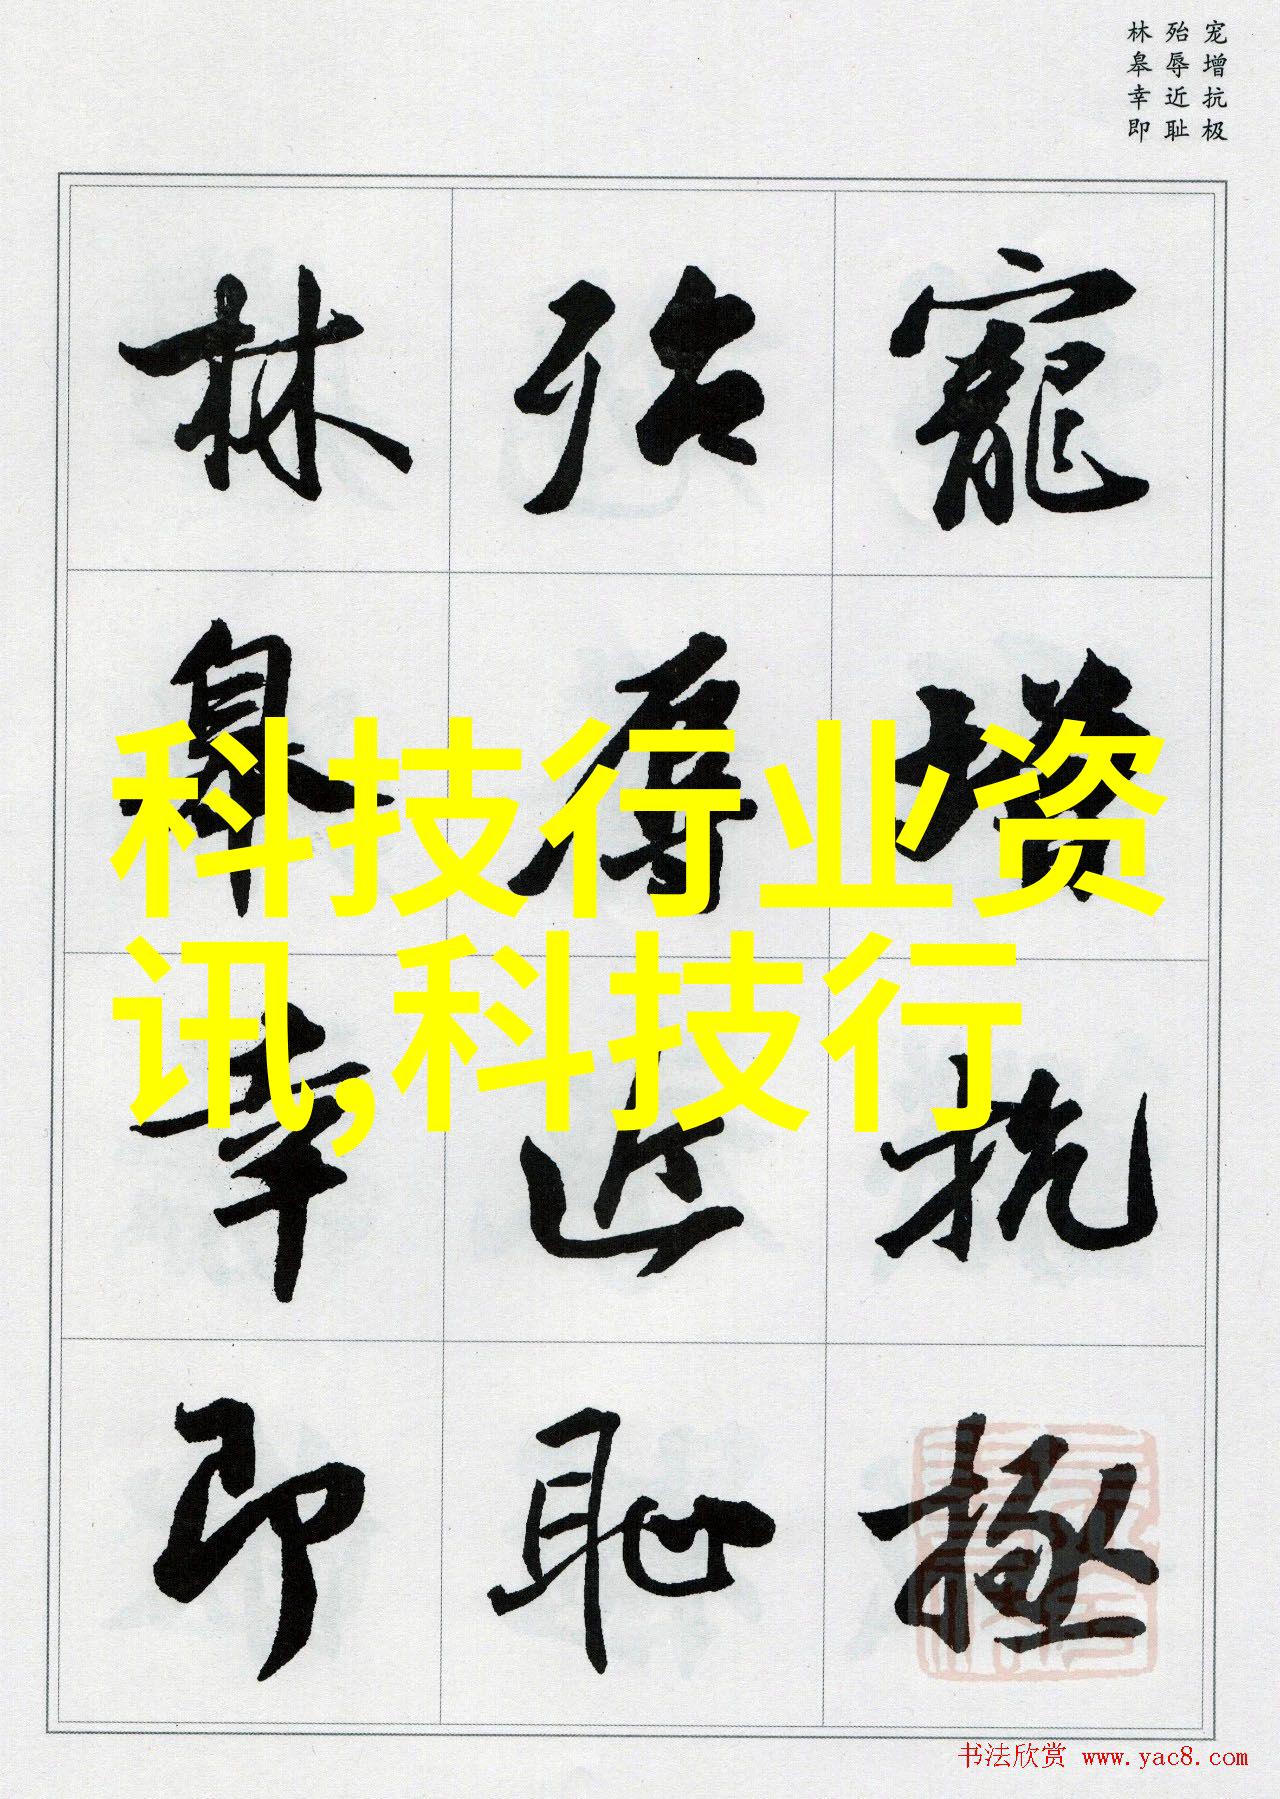 宠增抗极
殆辱近耻
林皋幸即
寵增抗極
殆辱近耻
林皋幸即
科技行业资
讯,科技行
书法欣赏 www.yac8.com